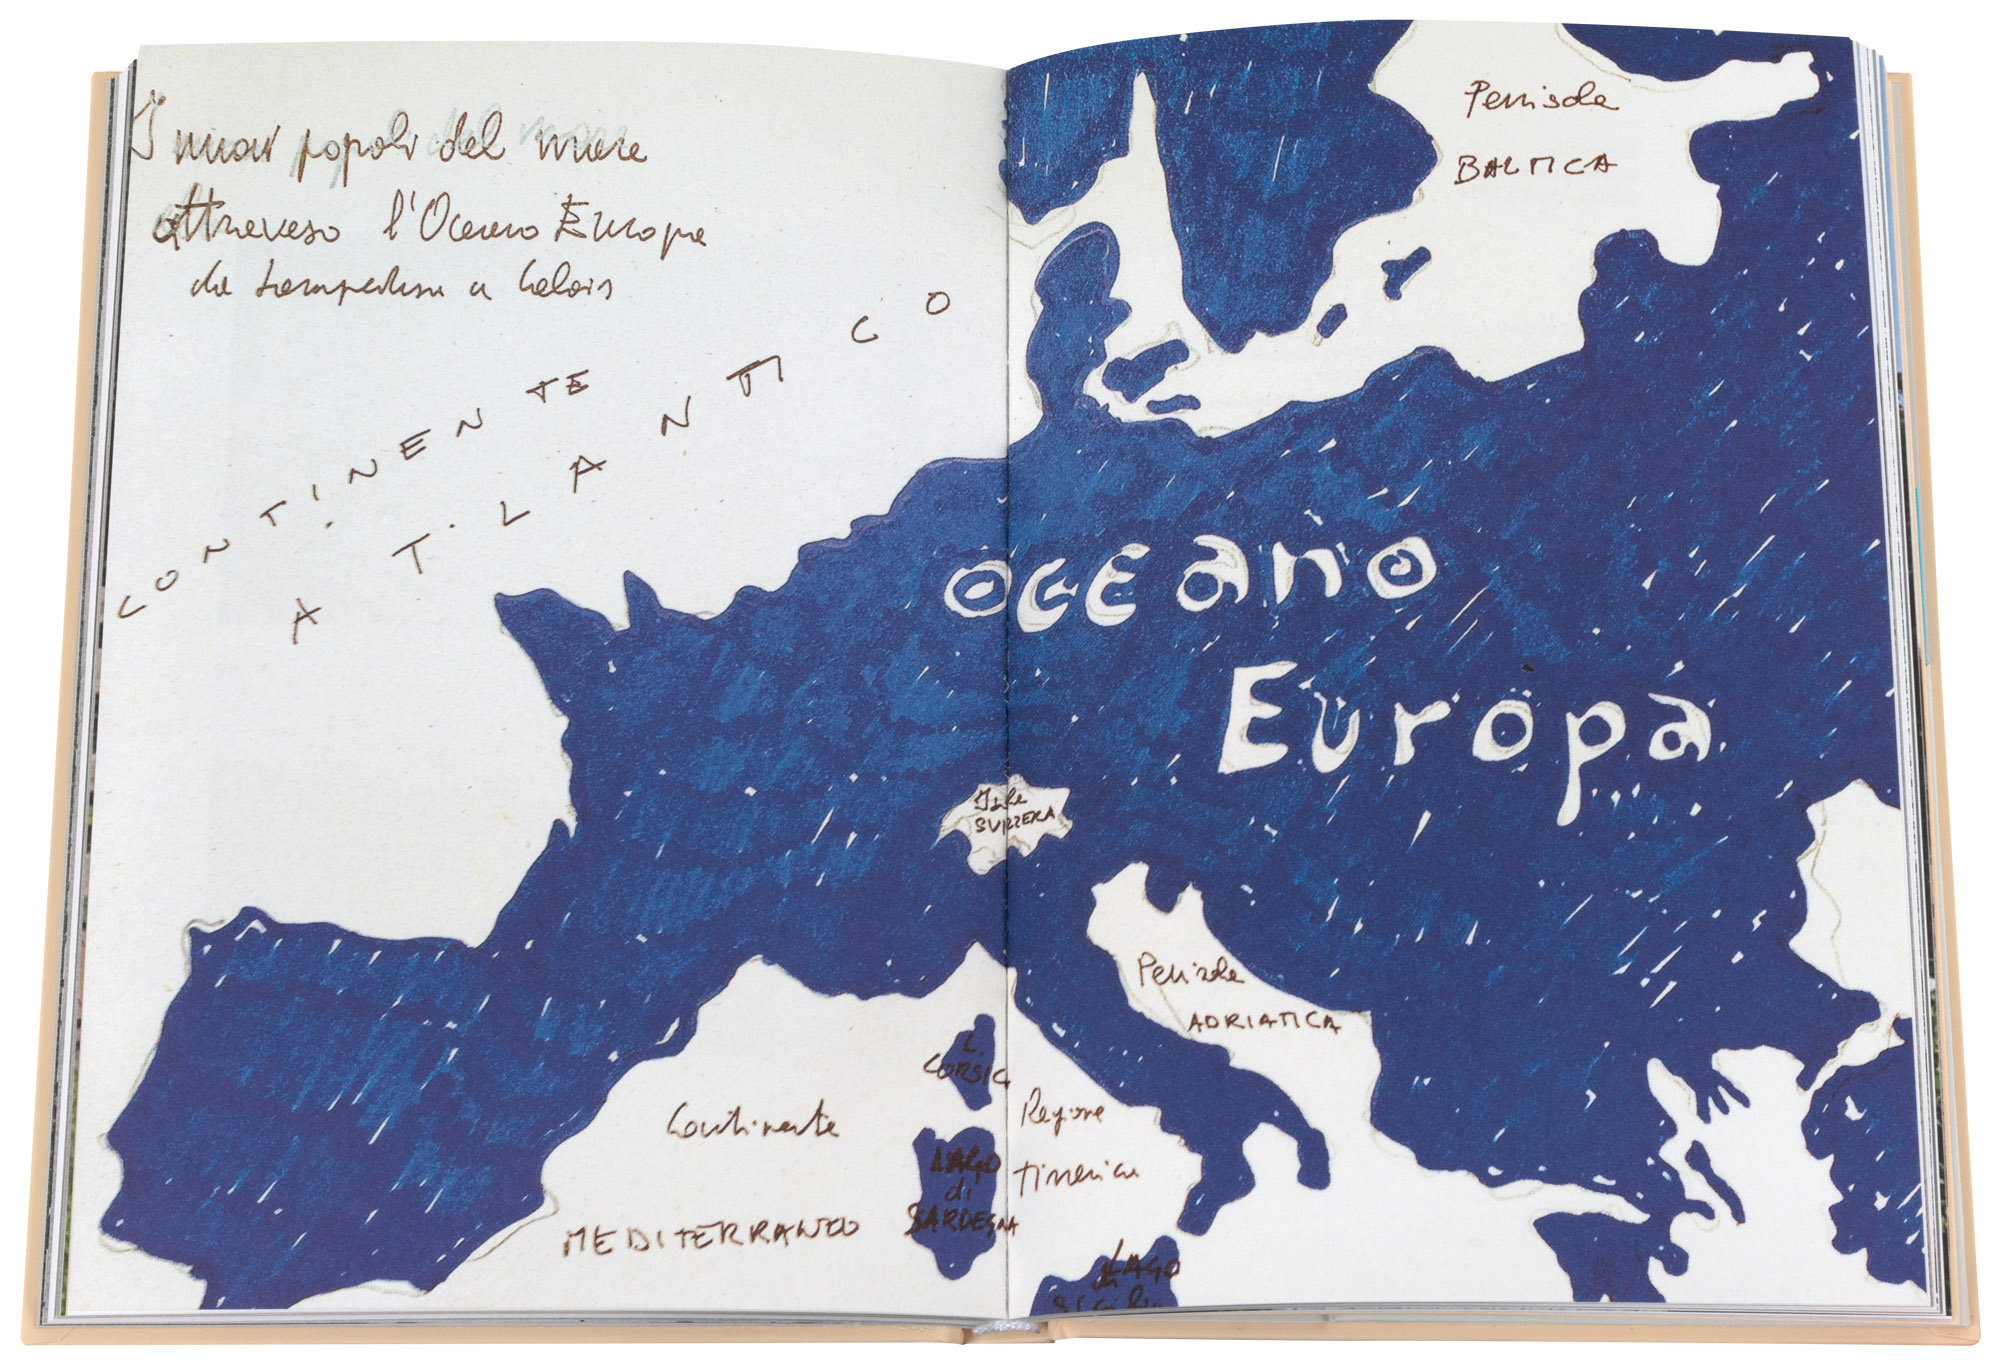 I nuovi popoli del mare
attraverso l'Oceano Europa
da Lampedusa a Calais
CONTINENTE
ATLANTICO
Penisola
BALTICA
oceano
Europa
Isola
SVIZZERA
Penisola
ADRIATICA
L.
CORSIC
Continente
MEDITERRANEO
LAGO
di
SARDEGNA
Regione
Tirrenica
LAGO
di
SICILIA